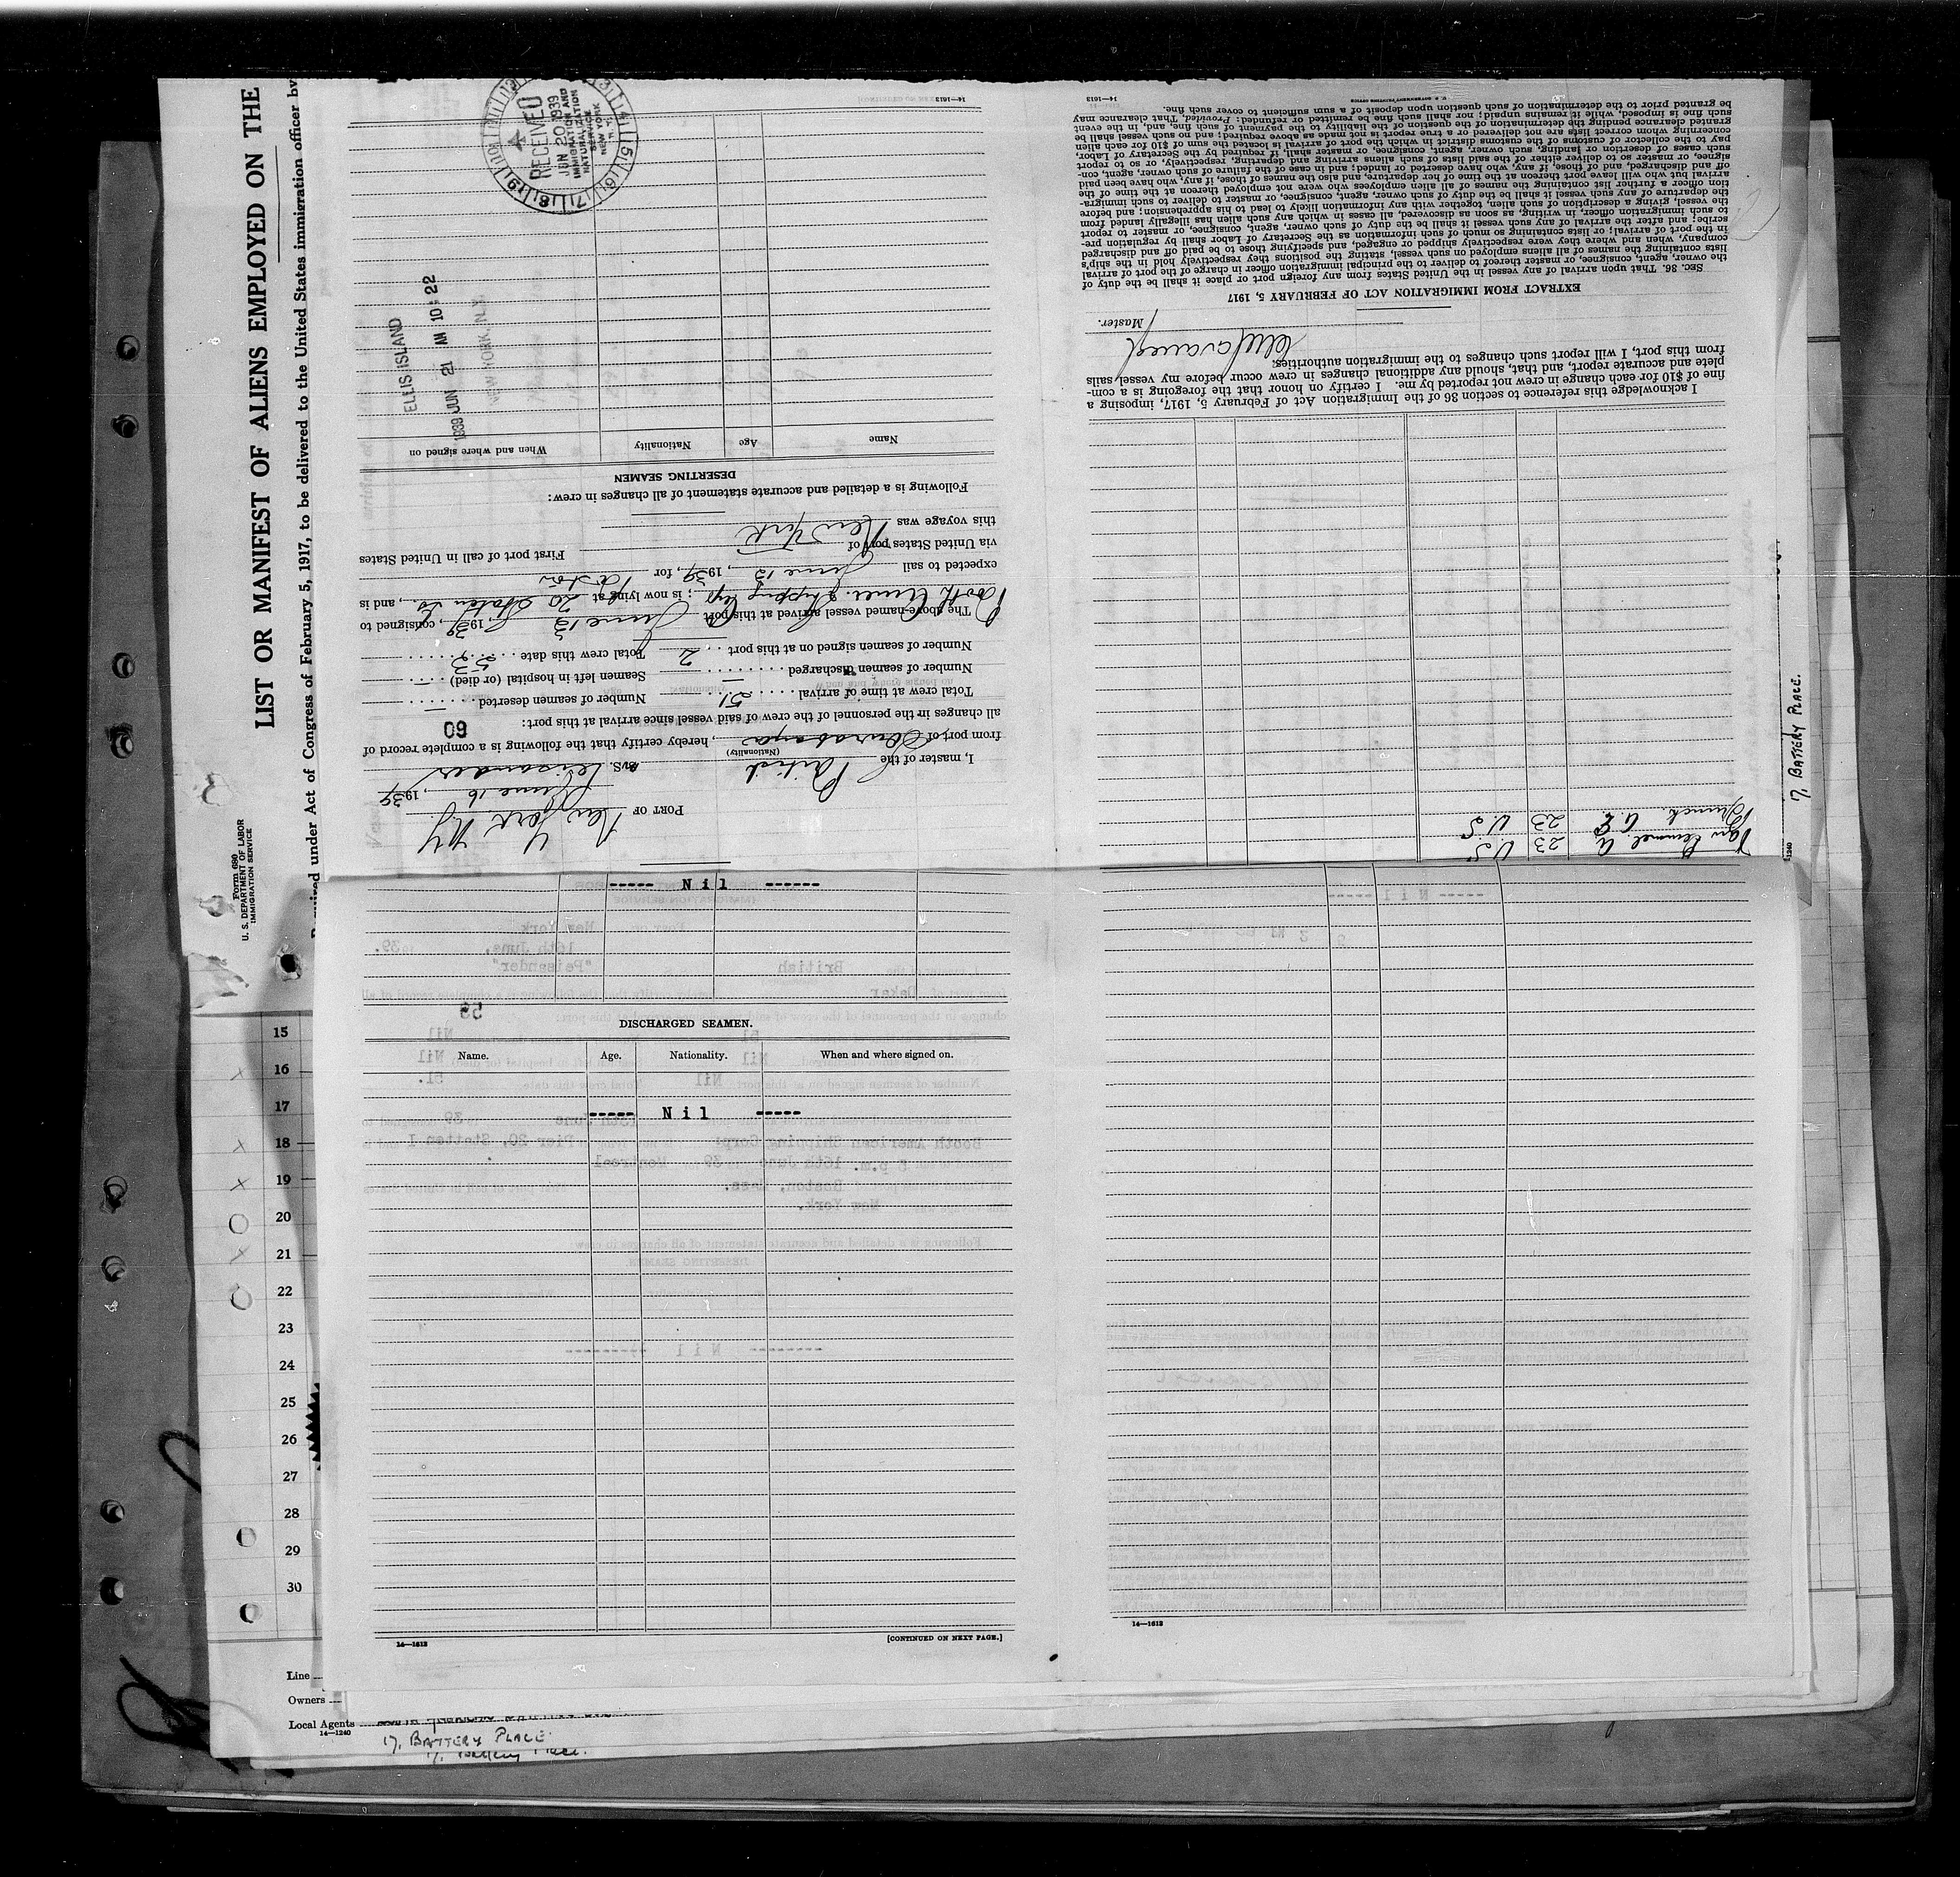 LIST OR MANIFEST OF ALIENS EMPLOYED ON THE
under Act of Congress of February 5, 1917, to be delivered to the United States immigration officer by
Form 680
U. S. DEPARTMENT OF LABOR
IMMIGRATION SERVICE
PORT OF New York NY
June 16, 1939
I, master of the British S/S. Peisander
(Nationality)
from port of Sourabaya, hereby certify that the following is a complete record of
all changes in the personnel of the crew of said vessel since arrival at this port:
60
Total crew at time of arrival 51 Number of seamen deserted —
Number of seamen discharged — Seamen left in hospital (or died) —
Number of seamen signed on at this port 2 Total crew this date 53
The above-named vessel arrived at this port June 13, 1939, consigned to
Booth Amer. Shipping Corp; is now lying at 20 Staten Is., and is
expected to sail June 13, 1939, for Boston
via United States port of First port of call in United States
this voyage was New York
Following is a detailed and accurate statement of all changes in crew:
DESERTING SEAMEN
Name Age Nationality When and where signed on
ELLIS ISLAND
1939 JUN 21 AM 10:22
NEW YORK, N.Y.
RECEIVED
JUN 20 1939
IMMIGRATION AND
NATURALIZATION
SERVICE
NEW YORK
N. Y.
14—1613
Van Cummel A 23 US
Burnick. A. E 23 US
I acknowledge this reference to section 36 of the Immigration Act of February 5, 1917, imposing a
fine of $10 for each change in crew not reported by me. I certify on honor that the foregoing is a com-
plete and accurate report, and that, should any additional changes in crew occur before my vessel sails
from this port, I will report such changes to the immigration authorities.
Master.
EXTRACT FROM IMMIGRATION ACT OF FEBRUARY 5, 1917
SEC. 36. That upon arrival of any vessel in the United States from any foreign port or place it shall be the duty of
the owner, agent, consignee, or master thereof to deliver to the principal immigration officer in charge of the port of arrival
lists containing the names of all aliens employed on such vessel, stating the positions they respectively hold in the ship's
company, when and where they were respectively shipped or engaged, and specifying those to be paid off and discharged
in the port of arrival; or lists containing so much of such information as the Secretary of Labor shall by regulation pre-
scribe; and after the arrival of any such vessel it shall be the duty of such owner, agent, consignee, or master to report
to such immigration officer, in writing, as soon as discovered, all cases in which any such alien has illegally landed from
the vessel, giving a description of such alien, together with any information likely to lead to his apprehension; and before
the departure of any such vessel it shall be the duty of such owner, agent, consignee, or master to deliver to such immigra-
tion officer a further list containing the names of all alien employees who were not employed thereon at the time of the
arrival but who will leave port thereon at the time of her departure, and also the names of those, if any, who have been paid
off and discharged, and of those, if any, who have deserted or landed; and in case of the failure of such owner, agent, con-
signee, or master so to deliver either of the said lists of such aliens arriving and departing, respectively, or so to report
such cases of desertion or landing, such owner, agent, consignee, or master shall, if required by the Secretary of Labor,
pay to the collector of customs of the customs district in which the port of arrival is located the sum of $10 for each alien
concerning whom correct lists are not delivered or a true report is not made as above required; and no such vessel shall be
granted clearance pending the determination of the question of the liability to the payment of such fine, and, in the event
such fine is imposed, while it remains unpaid; nor shall such fine be remitted or refunded: Provided, That clearance may
be granted prior to the determination of such question upon deposit of a sum sufficient to cover such fine.
14—1613
17, BATTERY PLACE.
----- Nil ------
DISCHARGED SEAMEN.
Name. Age. Nationality. When and where signed on.
----- Nil -----
14—1613 [CONTINUED ON NEXT PAGE.]
14—1613
15
16
17
18
19
20
21
22
23
24
25
26
27
28
29
30
Line
Owners
Local Agents
14—1240
17, BATTERY PLACE
17, Battery Place.